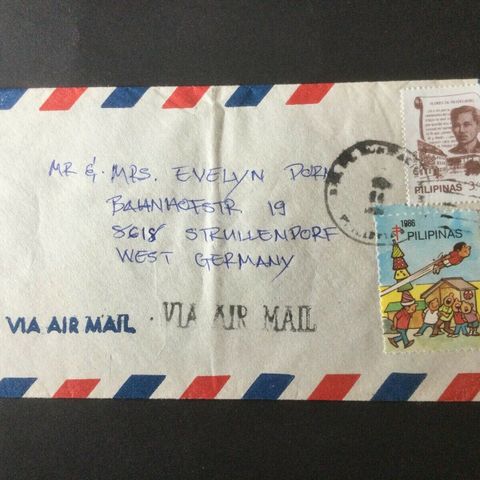 MR & MRS. EVELYN DORN
BAHNHOFSTR 19
8618 STRULLENDORF
WEST GERMANY
VIA AIR MAIL
VIA AIR MAIL
PILIPINAS
1986
PILIPINAS